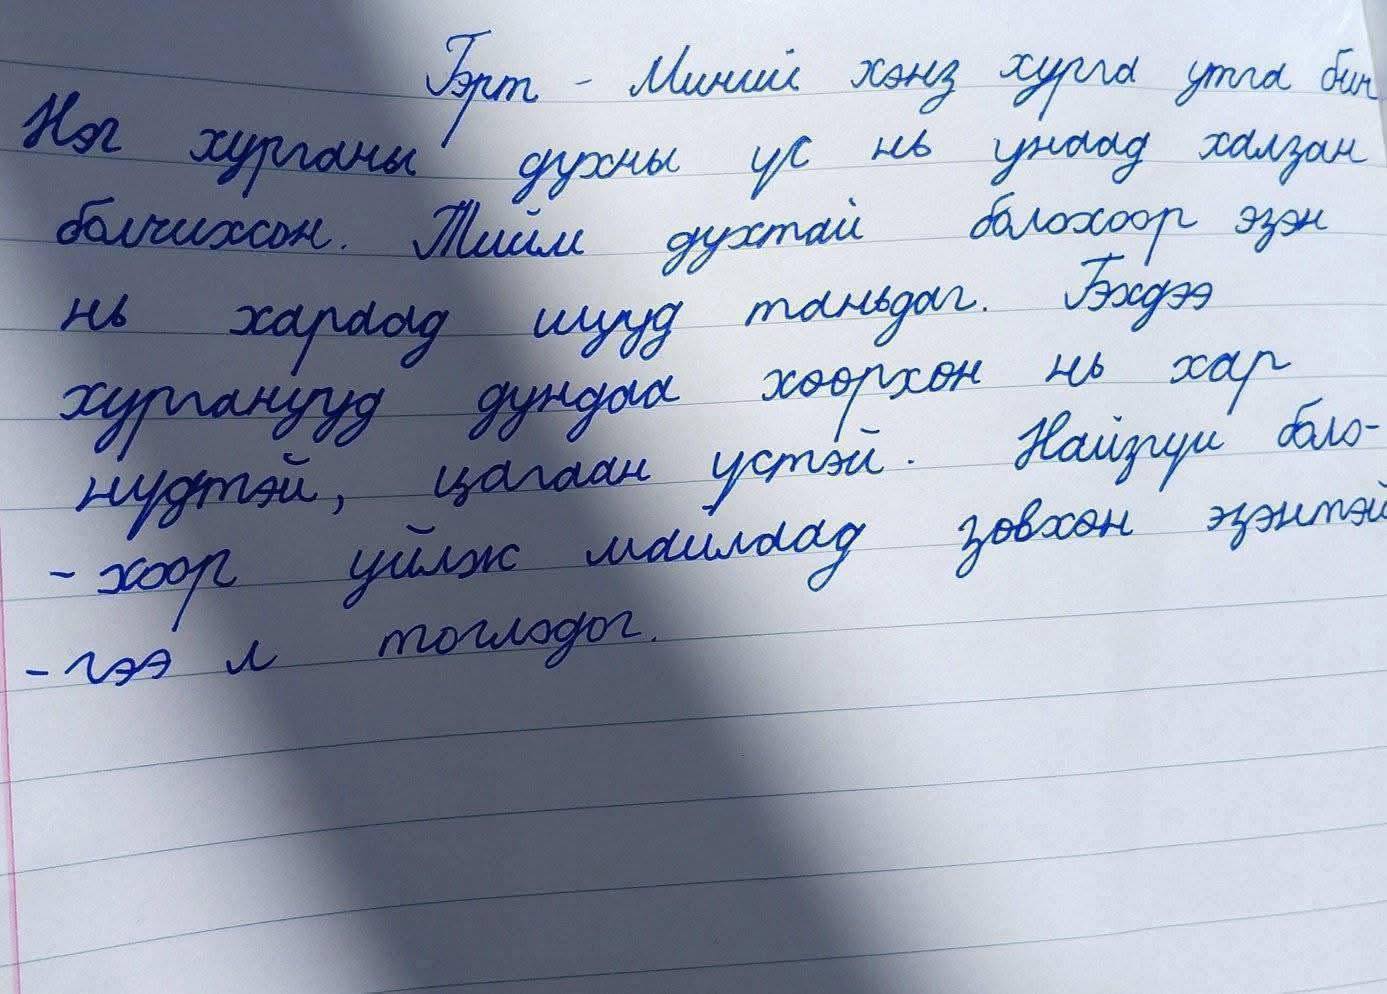 Гэрт - Миний хэнз хурга утга бич
Нэг хурганы духны үс нь унаад халзан
болчихсон. Тийм духтай болохоор эзэн
нь хараад шууд таньдаг. Гэхдээ
хурганууд дундаа хөөрхөн нь хар
нүдтэй, цагаан үстэй. Найзгүй боло-
- хоор уйлж майлаад зөвхөн эзэнтэй
- гээ л тоглодог.